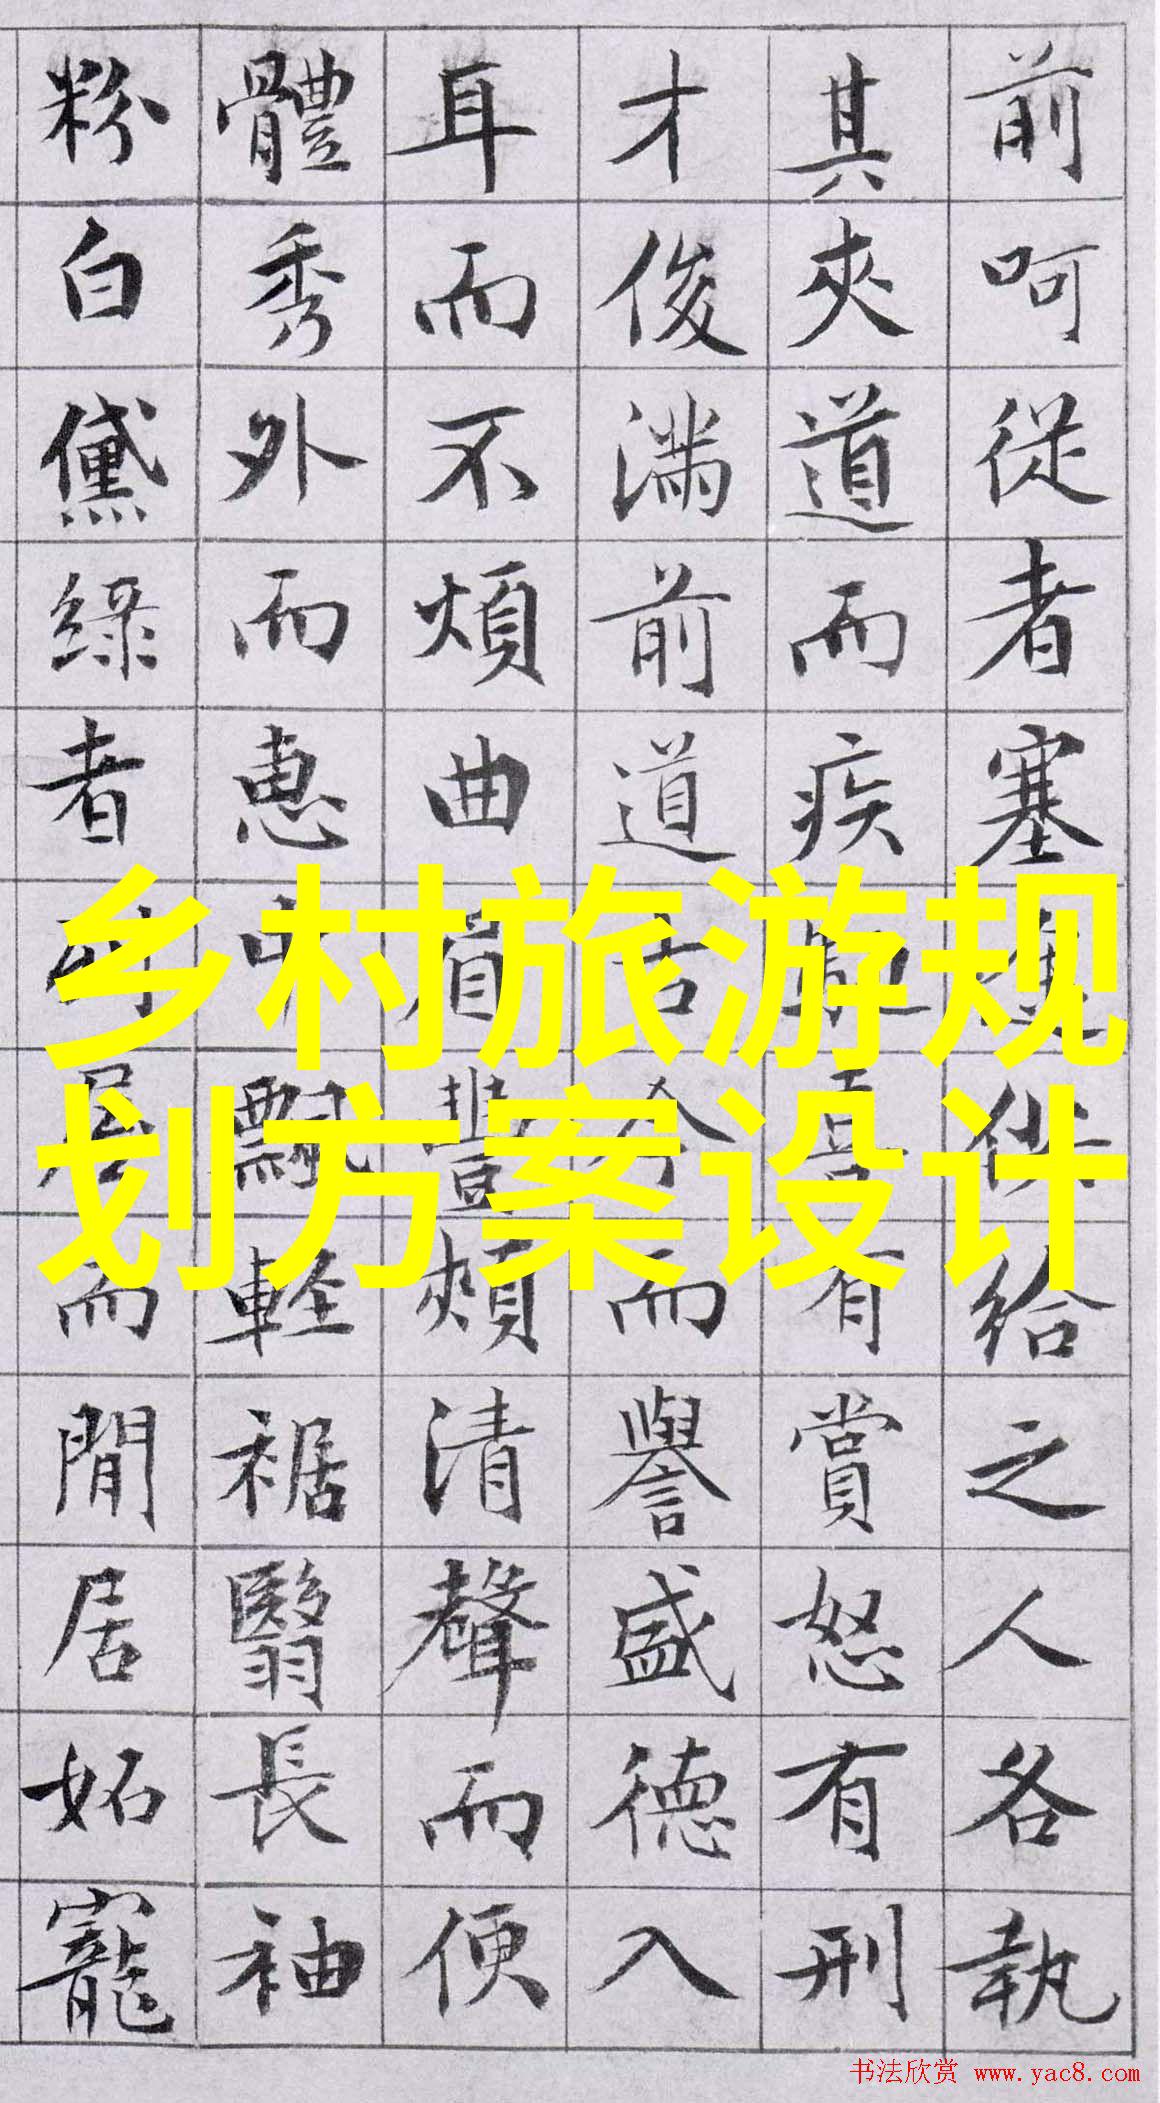 前呵從者塞供給之人各執
其夾道而疾喜有賞怒有刑
才俊滿前道古今而譽盛德入
耳而不煩曲眉豐頰清聲而便
體秀外而惠中飄輕裾翳長袖
粉白黛綠者列屋而閒居妬寵
乡村旅游规
划方案设计
书法欣赏 www.yac8.com